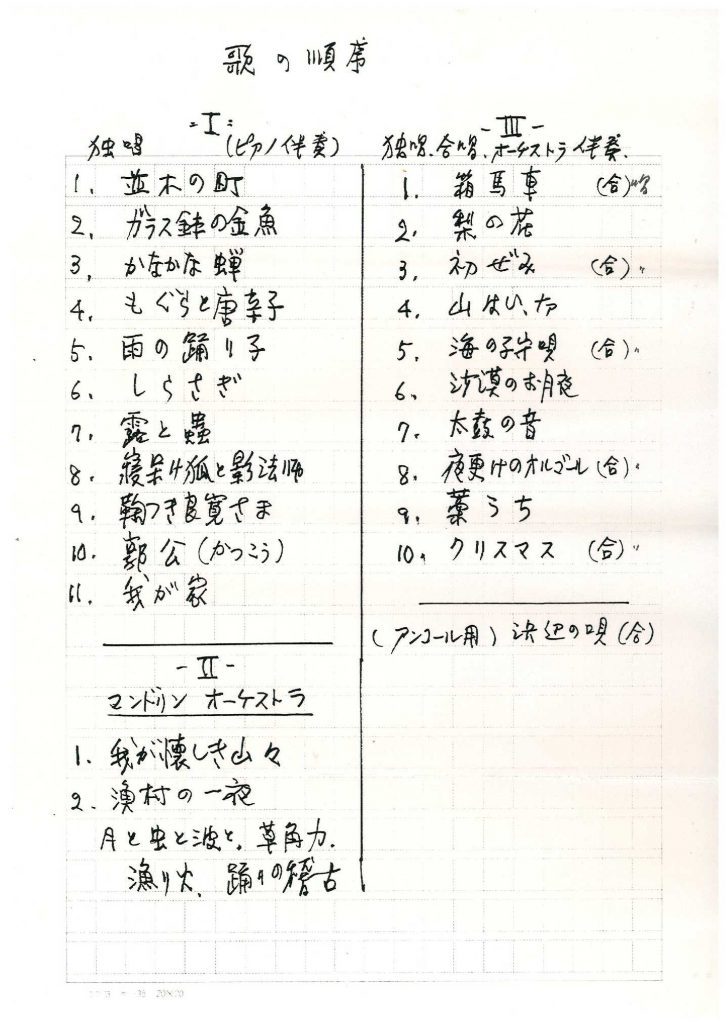 歌の順席
-I-
独唱 (ピアノ伴奏)
1. 並木の町
2. ガラス鉢の金魚
3. かなかな蝉
4. もぐらと唐辛子
5. 雨の踊り子
6. しらさぎ
7. 露と蟲
8. 寝呆け狐と影法師
9. 鞠つき良寛さま
10. 郭公(かっこう)
11. 我が家
-II-
マンドリン オーケストラ
1. 我が懐しき山々
2. 漁村の一夜
月と虫と波と、草角力、
漁り火、踊りの稽古
-III-
独唱、合唱、オーケストラ伴奏、
1. 箱馬車 (合)唱
2. 梨の花
3. 初ぜみ (合)〃
4. 山はいゝな
5. 海の子守唄 (合)〃
6. 沙漠のお月夜
7. 太鼓の音
8. 夜更けのオルゴール(合)〃
9. 藁うち
10. クリスマス (合)〃
(アンコール用) 浜辺の唄(合)